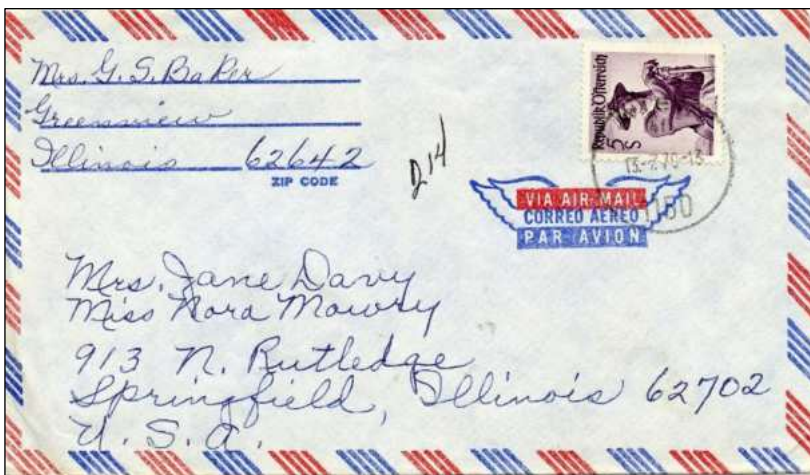 Mrs. G. S. Baker
Greenview
Illinois 62642
ZIP CODE
214
Republik Österreich
5 S
1150
VIA AIR MAIL
CORREO AEREO
PAR AVION
Mrs. Jane Davy
Miss Nora Mowry
913 N. Rutledge
Springfield, Illinois 62702
U. S. A.